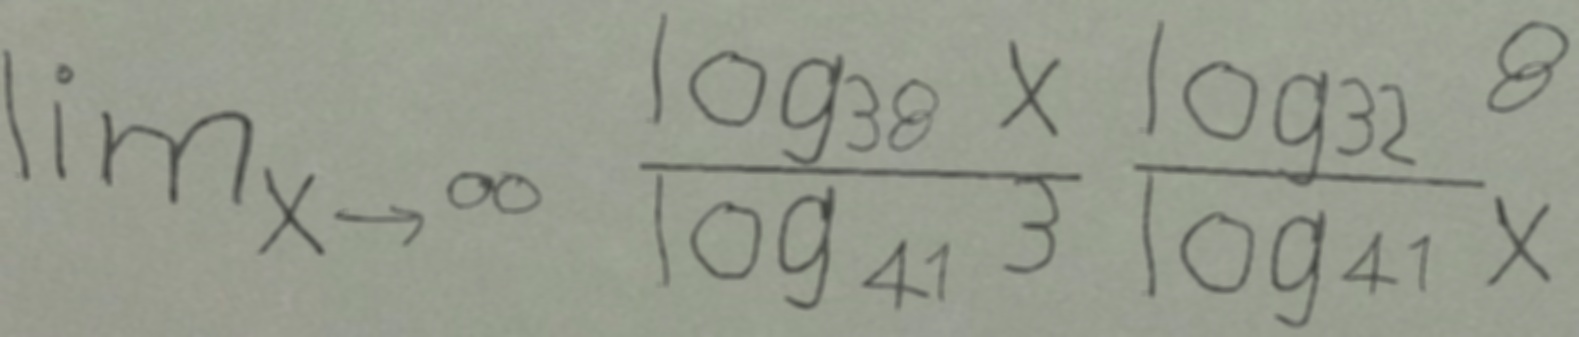 \lim_{x \to \infty} \frac{\log_{38} x}{\log_{41} 3} \frac{\log_{32} 8}{\log_{41} x}